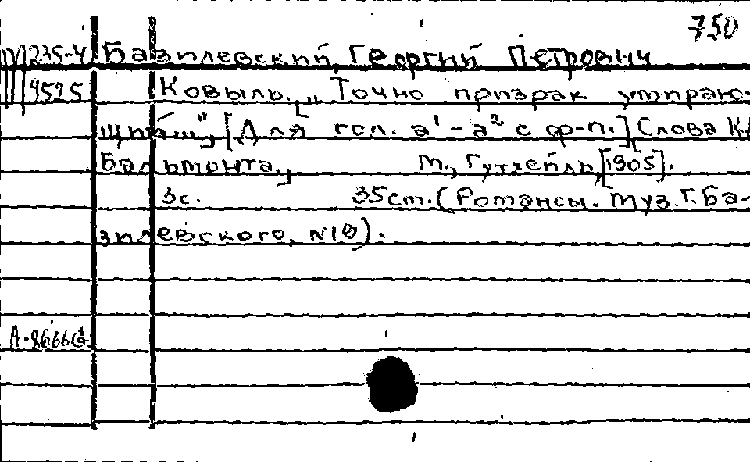 750
М 235-4 Базилевский, Георгий Петрович
4525 Ковыль. „Точно призрак умираю-
щий..." [Для гол. a¹-a² с ф-п.] Слова К.
Бальмонта. М., Гутхейль, [1905].
3с. 35см. (Романсы. Муз. Г. Ба-
зилевского, №10).